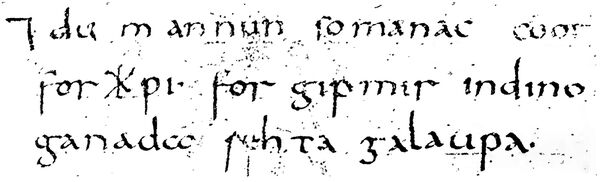 ⁊ du mannun somanac coot
forᚼpi· for gipmir indino
ganada rehta galaupa·